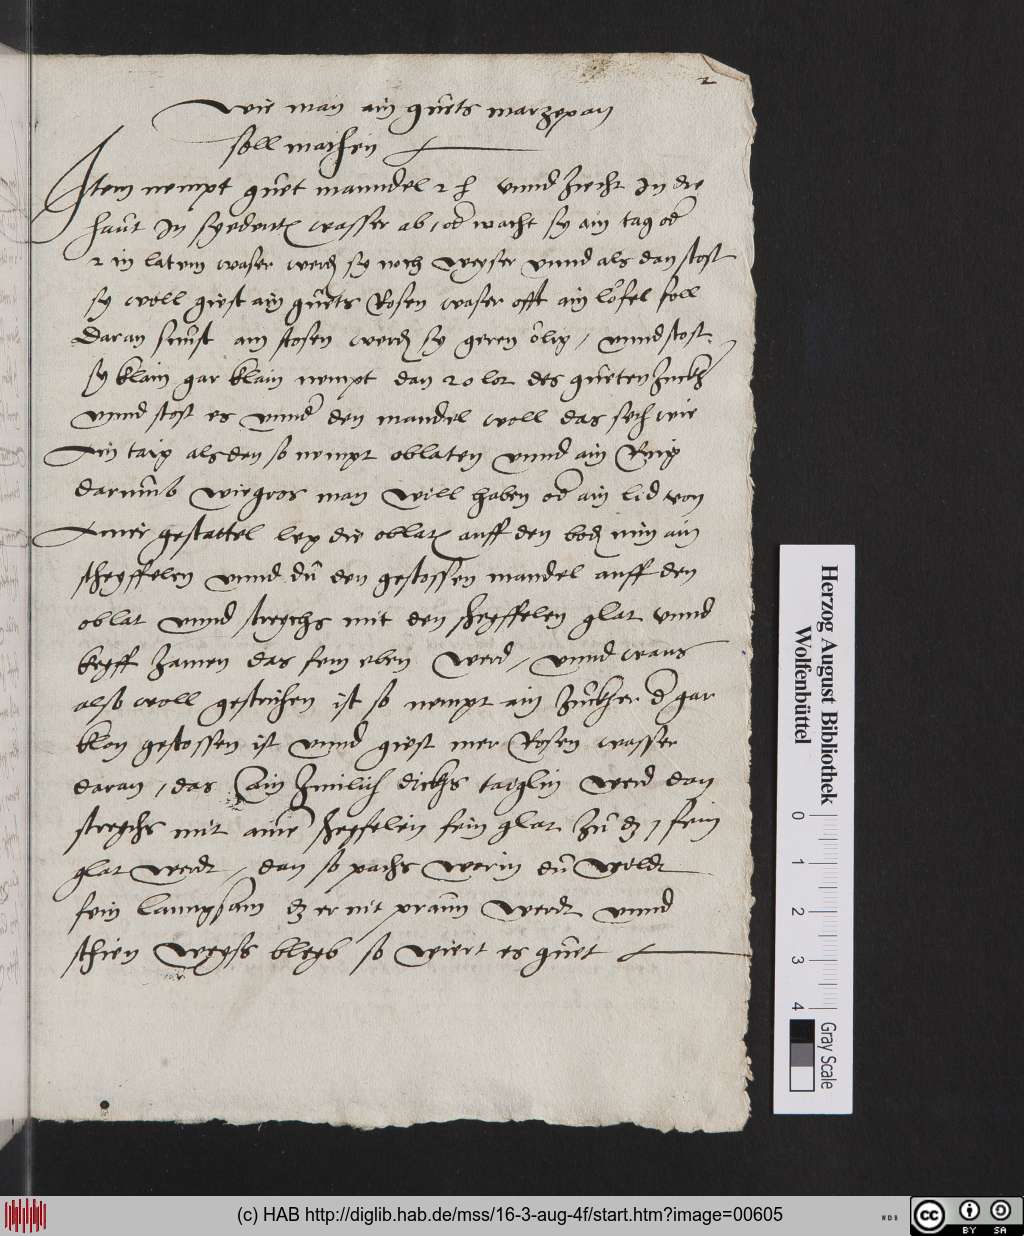 2
Wie man ain guets marzepan
soll machen
Item nempt guet manndel 2 h vnnd ziecht in die
haut in syedenten wasser ab, od wacht sy ain tag od
2 in latvm waser werd sy noch weyser vnnd als dan stost
sy woll giest ain guets Rosen waser offt ain löfel foll
daran sunst am stosen werd sy geren ölig, vnnd stost
sy klain gar klain nempt dan 20 lot des gueten Zuckh
vnnd stost es vnnd den mandel woll das sech wie
Ain taig als den so nempt oblaten vnnd ain Ring
darumb wie gros man will haben od ain lid von
Ainer gestattel leg die oblat auff den bod nim ain
scheyffelen vnnd du den gestossen mandel auff den
oblat vnnd streychs mit den scheyffelen glat vnnd
keyff zamen das fein eben werd, vnnd wans
also woll gestrichen ist so nempt ain Zuckher d gar
klen gestossen ist vnnd giest mer Rosen wasser
daran, das ain zimlich dickhs taiglin werd dan
streychs mit ainer scheyfelin fein glat zu dz, fein
glat werdt, dan so pachs worin du wildt
fein langsam dz er nit praun werdt vnnd
schien weyss bleyb so wiert es guet
Herzog August Bibliothek
Wolfenbüttel
0 1 2 3 4
Gray Scale
(c) HAB http://diglib.hab.de/mss/16-3-aug-4f/start.htm?image=00605
WDB
cc BY SA